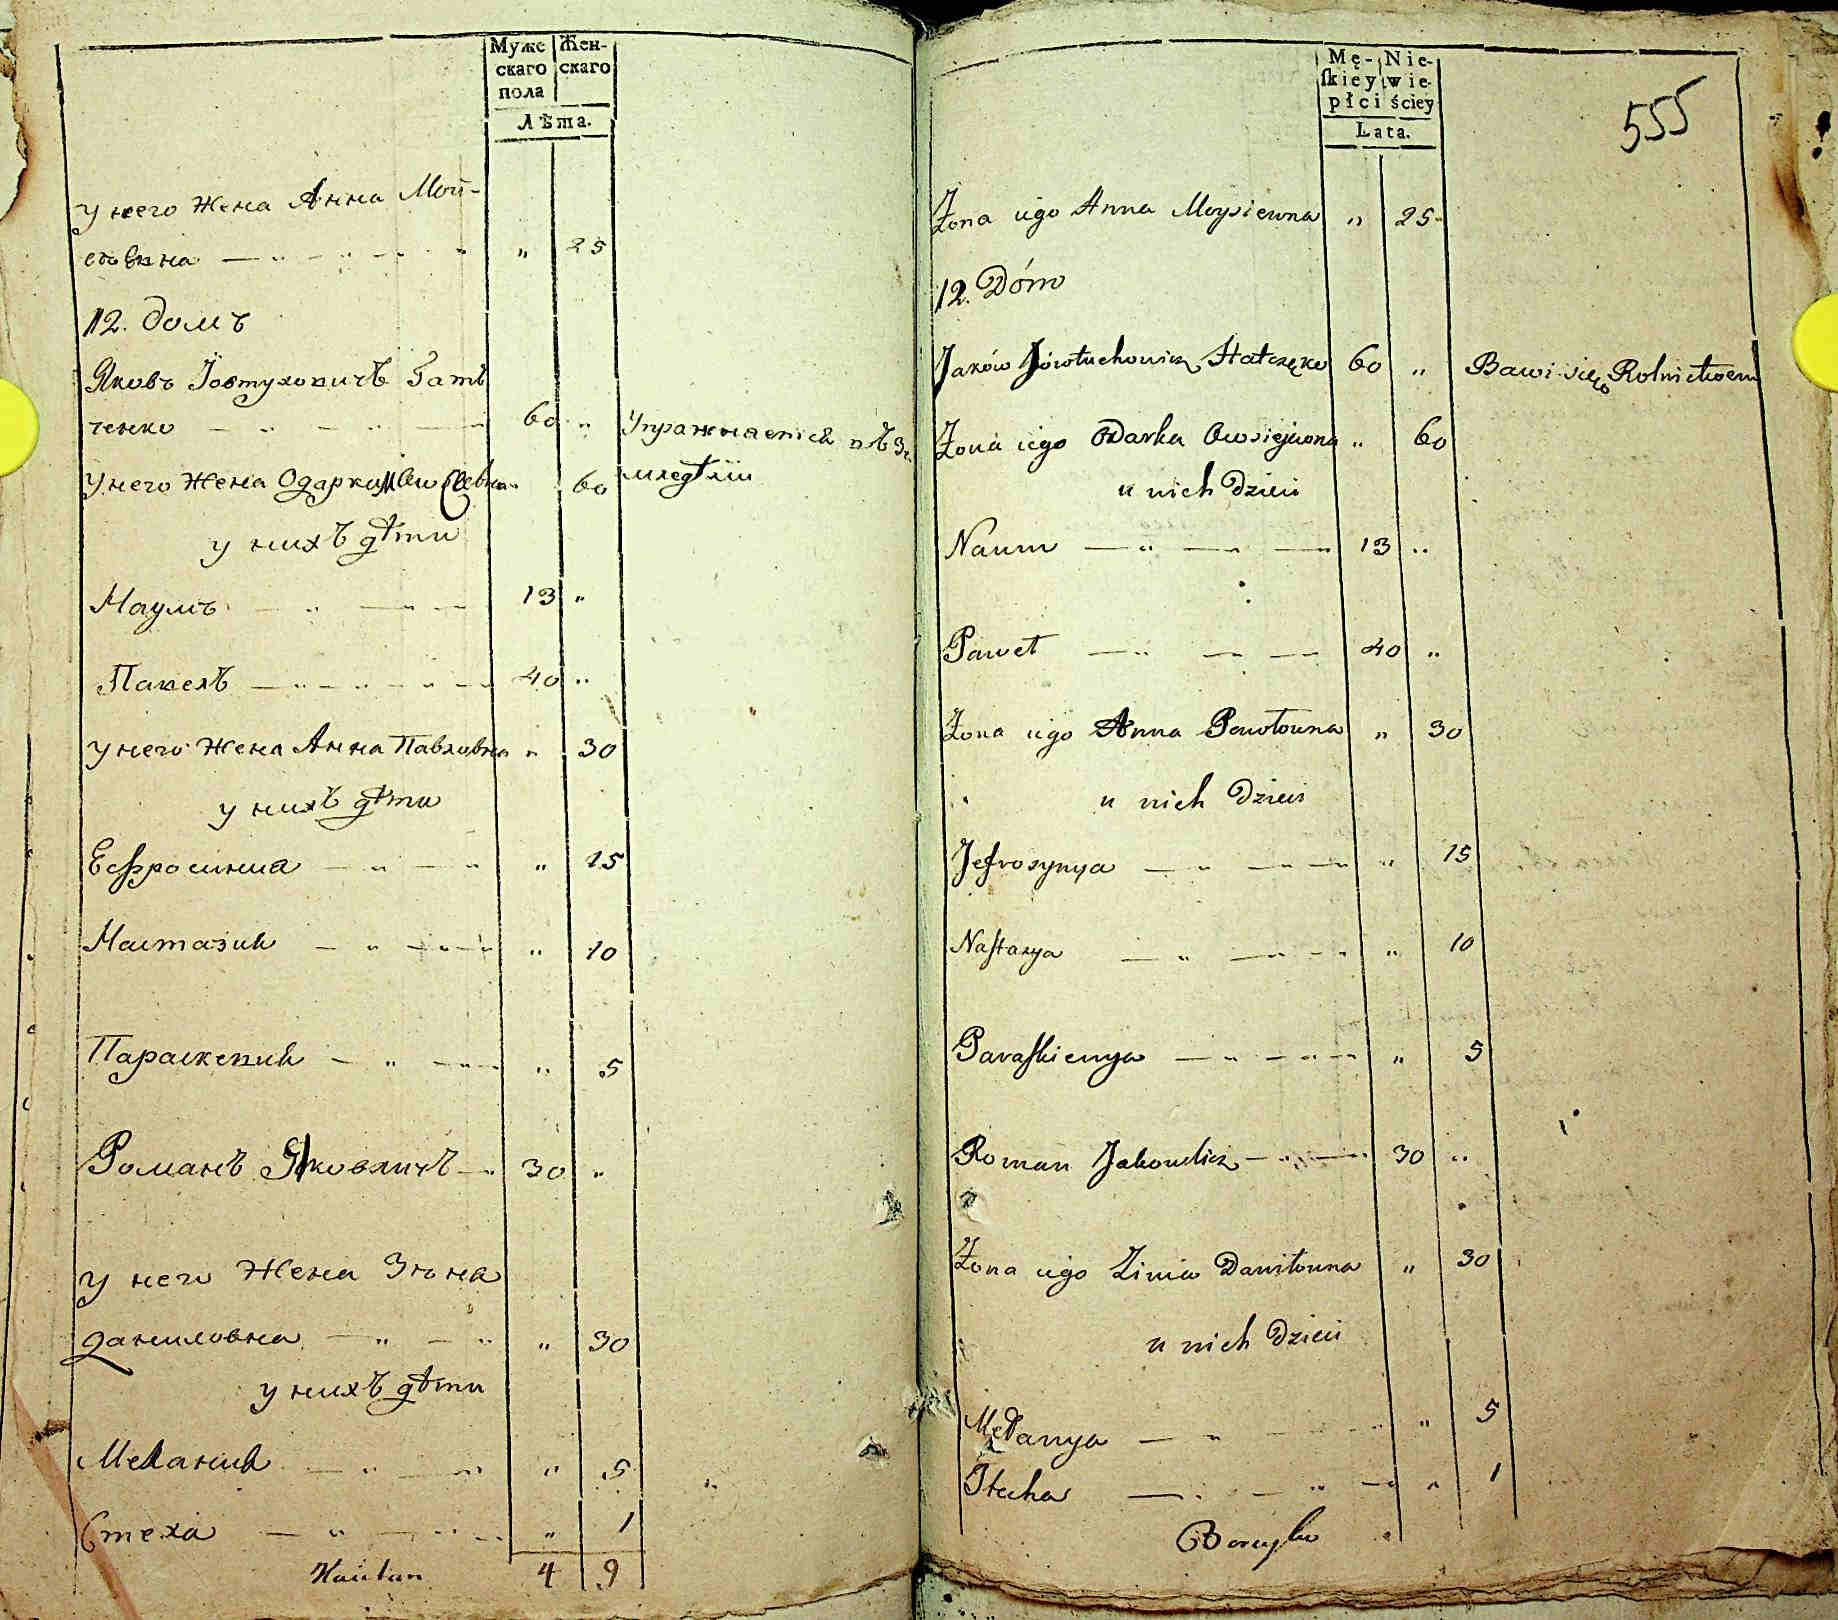 Муже
скаго
пола
Жен-
скаго
Лѣта.
у него Жена Анна Мои-
сіовна — " — " — " — " 25
12. домъ
Яковъ Іовтуховичъ Гать
ченко — " — " — 60 "
Упражняется въ Зе
мледѣліи
У него Жена Одарка " 60
у нихъ дѣти
Наумъ — " — — 13 "
Павелъ — " — " — " — 40 "
у него Жена Анна Павловна " 30
у нихъ дѣти
Ефросиниа — " — " " 15
Настазия — " — " — " 10
Параскевия — " — — " 5
Романъ Яковличъ — " 30 "
у него Жена Зѣна
даниловна — " — " " 30
у нихъ дѣти
Мелания — " — " " 5
Стеха — " — — " 1
4 9
Mę-
skiey
płci
Nie-
wie-
ściey
Lata.
555
Żona iego Anna Moysiewna " 25
12. Dóm
Jaków Jówtuchowicz Hatczęko 60 " Bawi się Rolnictwem
Żona iego Odarka Owsiejowna " 60
u nich Dzieci
Naum — " — " — " 13 "
Paweł — " — " — 40 "
Żona iego Anna Pawłowna " 30
u nich Dzieci
Jefrosynya — " — " — " " 15
Nastazya — " — " — " " 10
Paraskiewya — " — " — " " 5
Roman Jakowlicz — " — " 30 "
Żona iego Zinia Daniłowna " 30
u nich Dzieci
Mełanya — " — — " 5
Stecha — " — " — " " 1